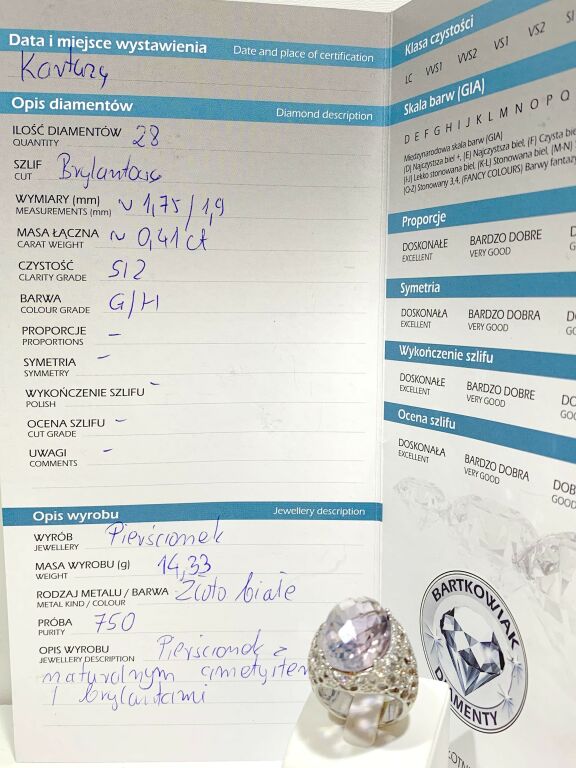 Data i miejsce wystawienia Date and place of certification
Kartuzy
Opis diamentów Diamond description
ILOŚĆ DIAMENTÓW 28
QUANTITY
SZLIF Brylantowy
CUT
WYMIARY (mm) ~ 1,75 / 1,9
MEASUREMENTS (mm)
MASA ŁĄCZNA ~ 0,41 ct
CARAT WEIGHT
CZYSTOŚĆ SI2
CLARITY GRADE
BARWA G/H
COLOUR GRADE
PROPORCJE –
PROPORTIONS
SYMETRIA –
SYMMETRY
WYKOŃCZENIE SZLIFU –
POLISH
OCENA SZLIFU –
CUT GRADE
UWAGI –
COMMENTS
Opis wyrobu Jewellery description
WYRÓB Pierścionek
JEWELLERY
MASA WYROBU (g) 14,33
WEIGHT
RODZAJ METALU / BARWA Złoto białe
METAL KIND / COLOUR
PRÓBA 750
PURITY
OPIS WYROBU Pierścionek z
JEWELLERY DESCRIPTION
naturalnym ametystem
i brylantami
Klasa czystości
LC VVS1 VVS2 VS1 VS2 SI
Skala barw (GIA)
D E F G H I J K L M N O P Q
Międzynarodowa skala barw (GIA)
(D) Najczystsza biel +, (E) Najczystsza biel, (F) Czysta bie
(I-J) Lekko stonowana biel, (K-L) Stonowana biel, (M-N)
(O-Z) Stonowany 3,4, (FANCY COLOURS) Barwy fantazy
Proporcje
DOSKONAŁE BARDZO DOBRE D
EXCELLENT VERY GOOD G
Symetria
DOSKONAŁA BARDZO DOBRA D
EXCELLENT VERY GOOD GO
Wykończenie szlifu
DOSKONAŁE BARDZO DOBRE DO
EXCELLENT VERY GOOD GOO
Ocena szlifu
DOSKONAŁA BARDZO DOBRA DOB
EXCELLENT VERY GOOD GOOD
BARTKOWIAK
DIAMENTY